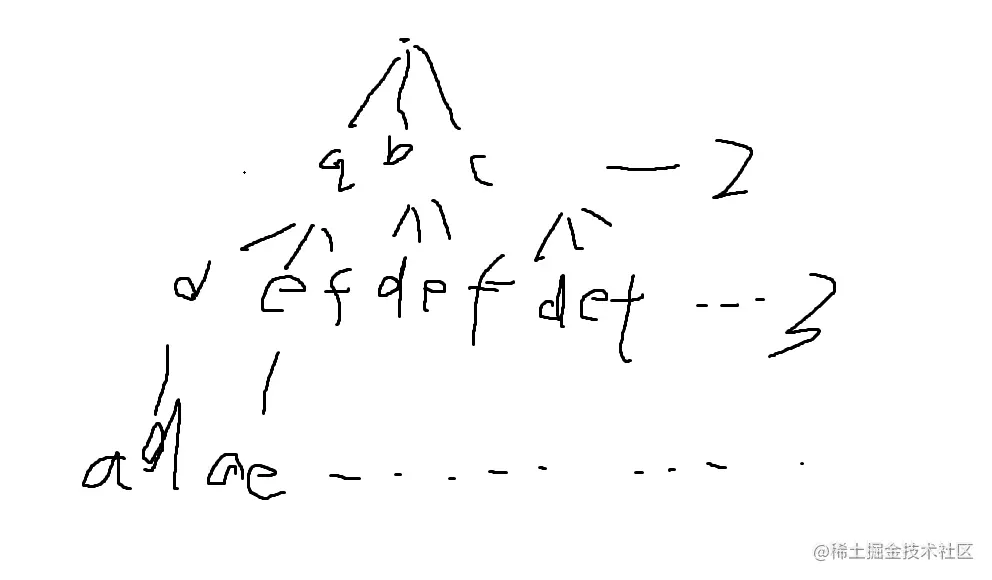 a b c — 2
d e f d e f d e f --- 3
ad ae - . . - . . . - .
@稀土掘金技术社区